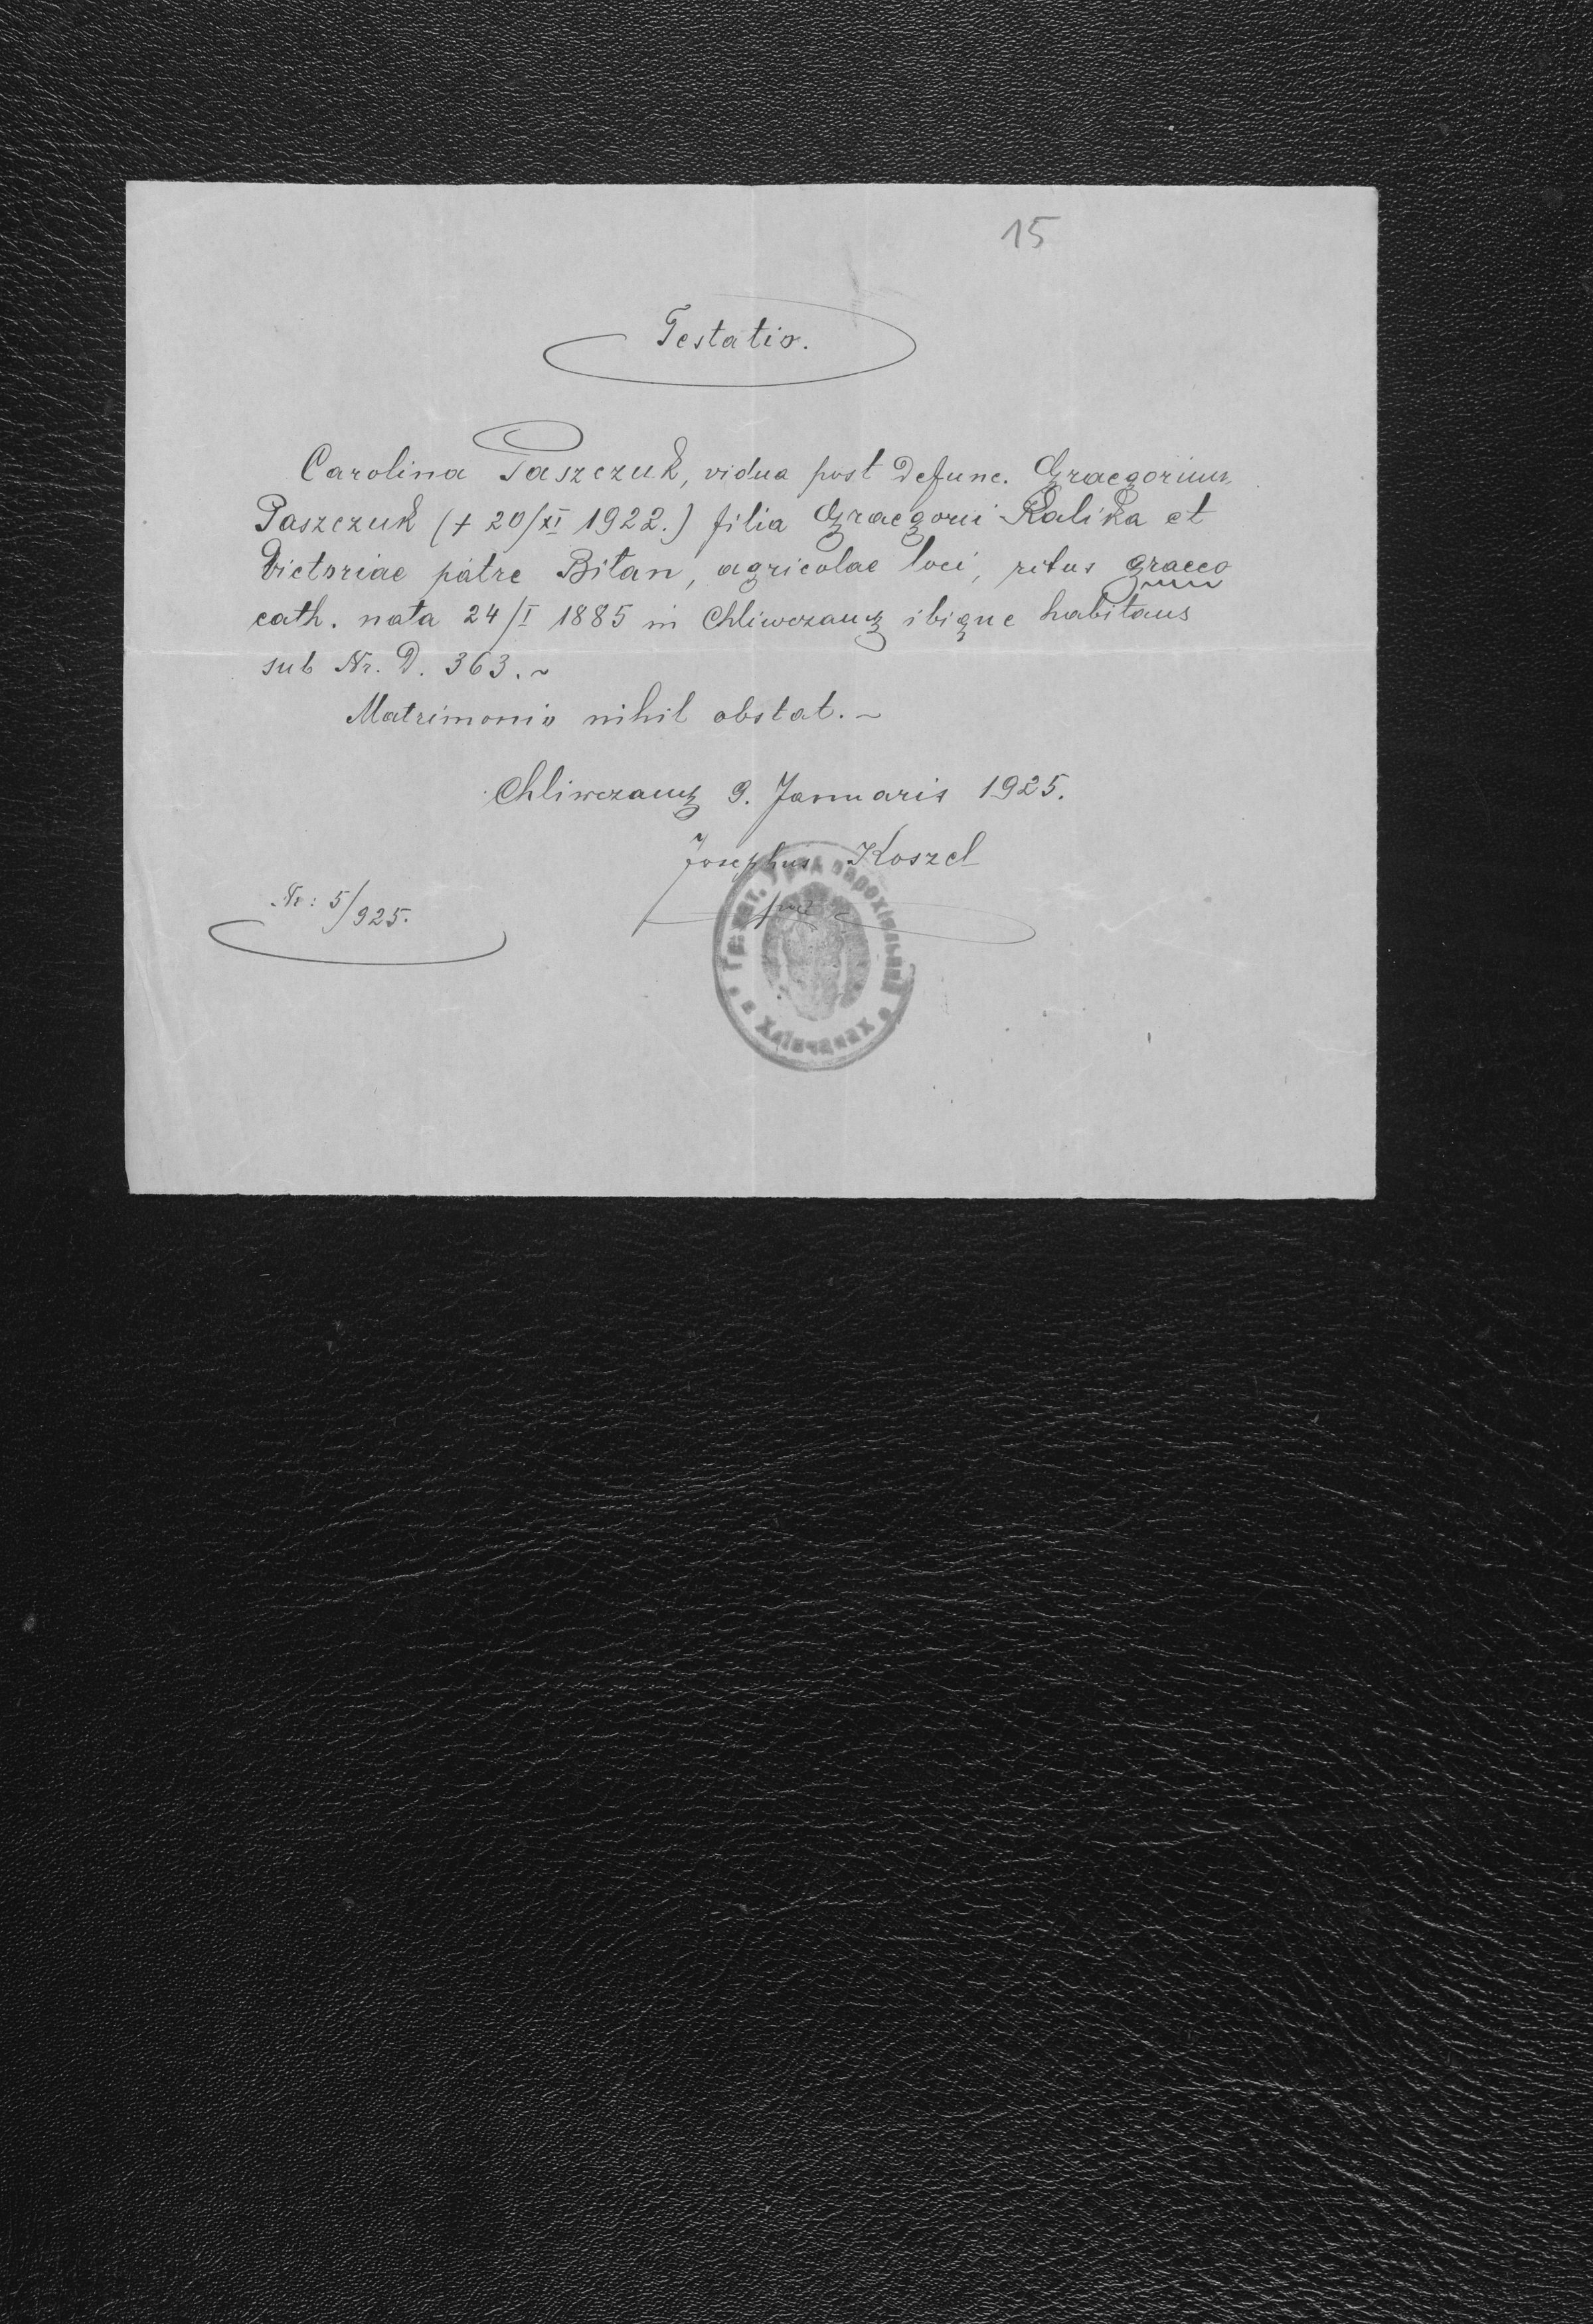 15
Testatio.
Carolina Paszczuk, vidua post defunc. Graegorium
Paszczuk (+ 20/XI 1922.) filia Graegorii Kalika et
Victoriae patre Bitan, agricolae loci, ritus graeco
cath. nata 24/I 1885 in Chliwczany ibique habitans
sub Nr. D. 363. ~
Matrimonio nihil obstat. ~
Chliwczany 9. Januaris 1925.
Josephus Koszel
Nr: 5/925.
Гр. кат. Уряд парохіяльний